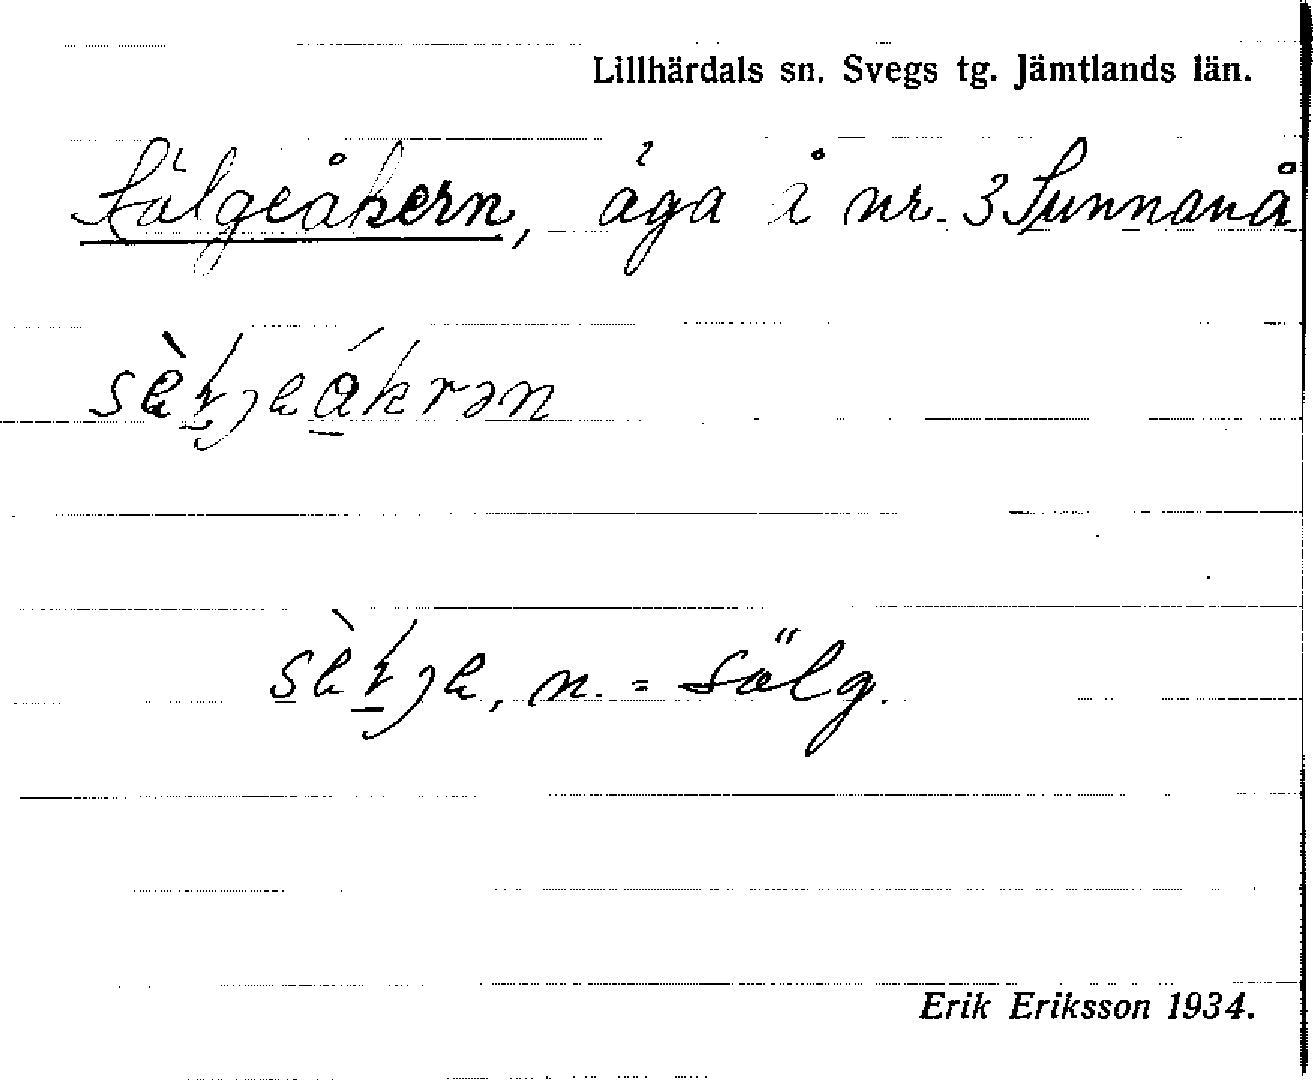 Lillhärdals sn. Svegs tg. Jämtlands län.
Sälgeåkern, äga å nr. 3 Sunnanå
sälg.
Erik Eriksson 1934.